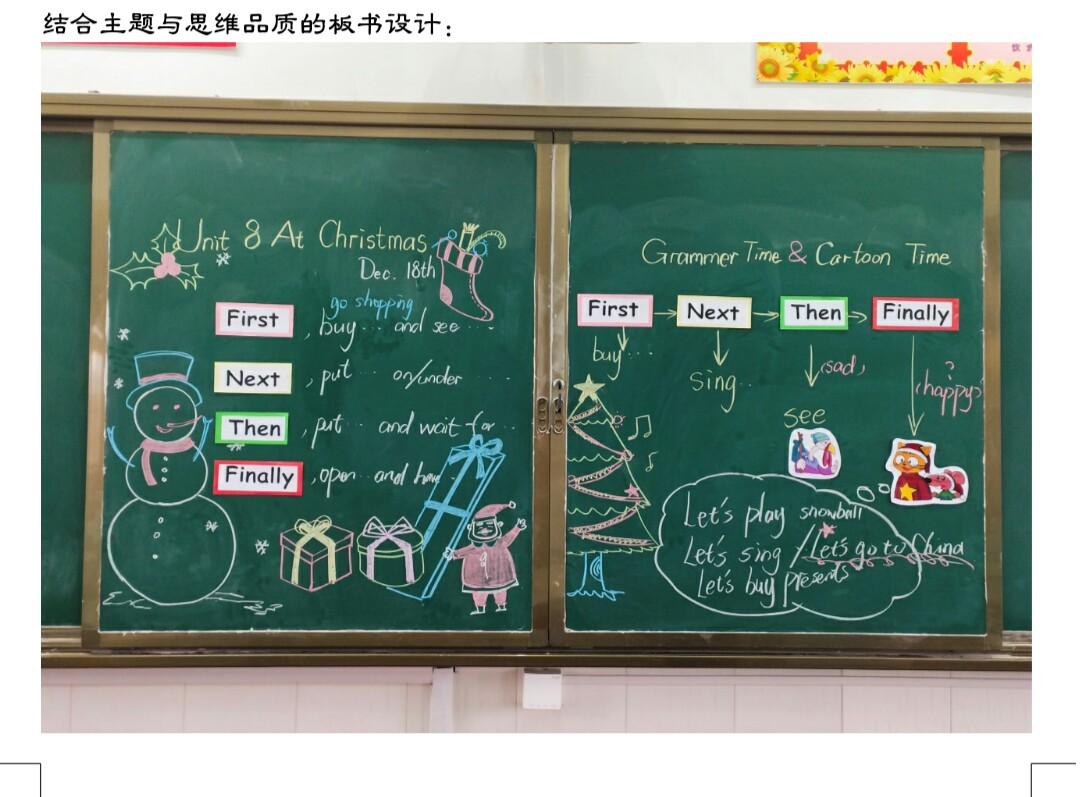 结合主题与思维品质的板书设计：
Unit 8 At Christmas
Dec. 18th
go shopping
First, buy... and see....
Next, put... on/under....
Then, put... and wait for...
Finally, open... and have..
Grammer Time & Cartoon Time
First → Next → Then → Finally
buy...
sing..
(sad)
(happy)
see
Let's play snowball
Let's sing / Let's go to China
Let's buy presents